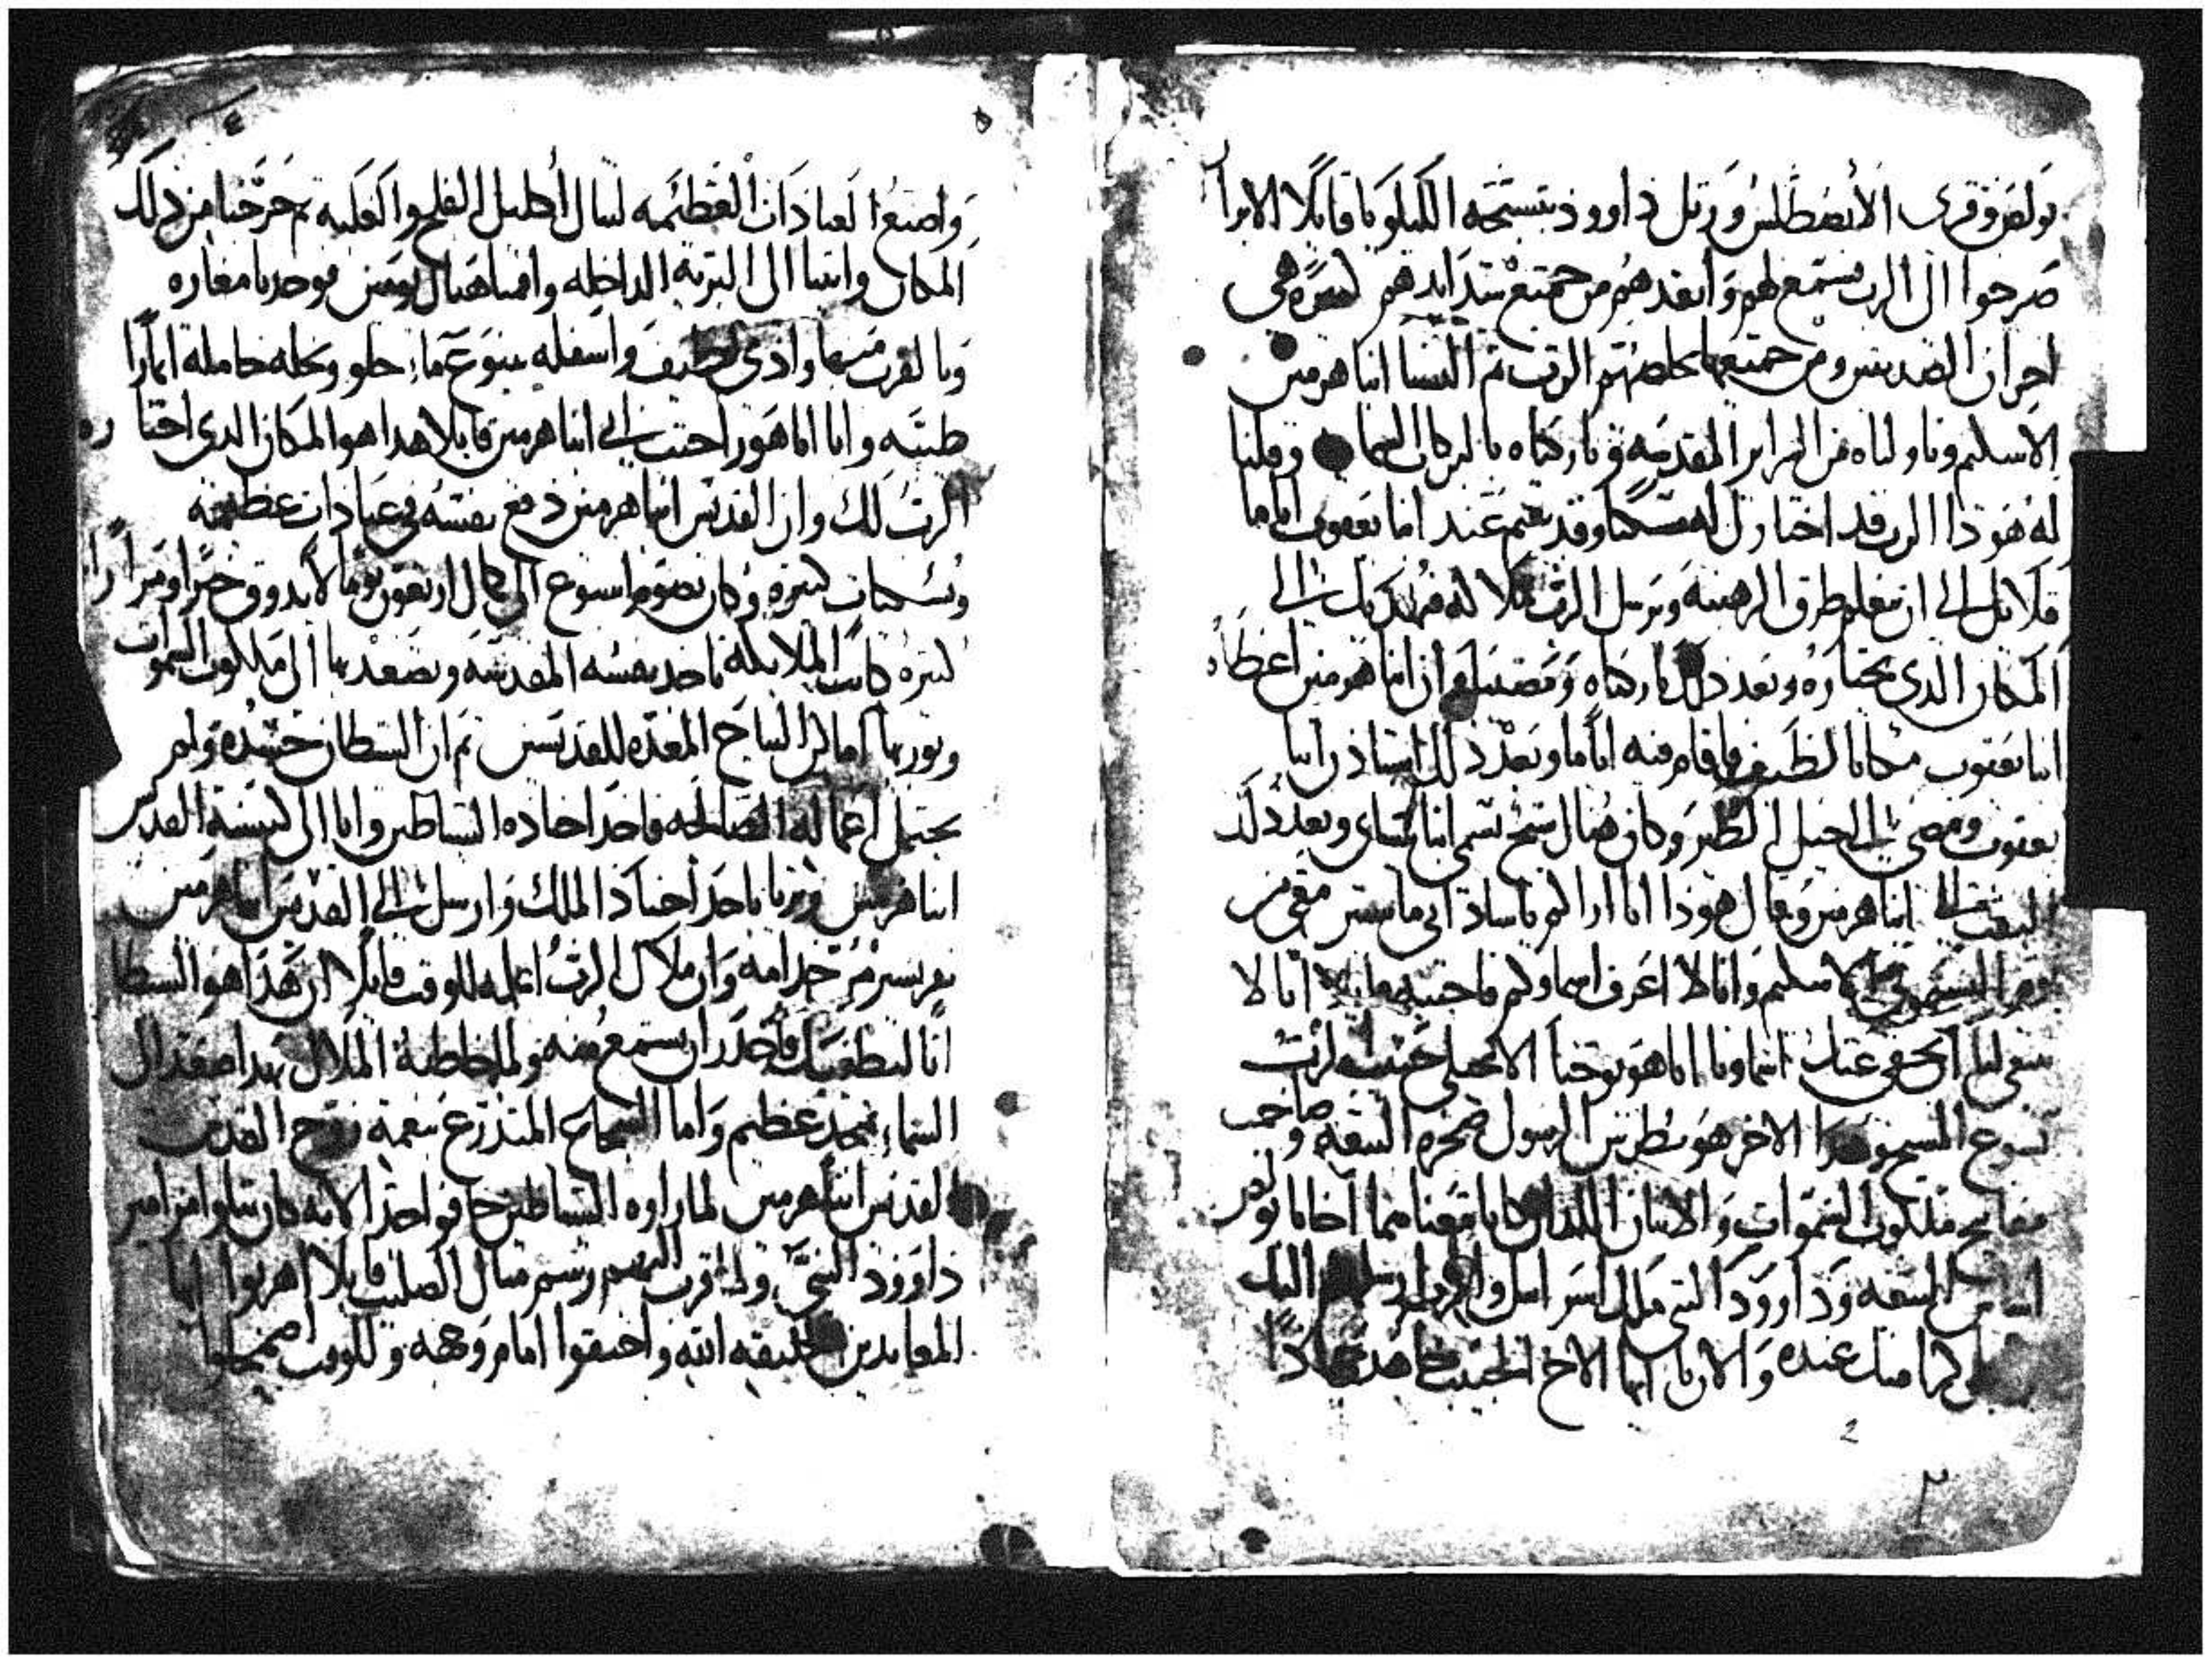 بولص وقرى الابصطلس ورتل داوود بتسبحه الليلويا قايلا الابرار
صرخوا الى الرب يستمع لهم وانقدهم من جميع شدايدهم كثيره هى
احزان الصديقين ومن جميعها يخلصهم الرب ثم البسنا انبا هرمين
الاسكيم وناولناه من السراير المقدسه وباركناه بالبركات السما وقلنا
له هودا الرب قد اختار لك مسكنا وقد تقيم عند انبا يعقوب اياما
قلايل الى ان تتعلم طرق الرهبنه ويرسل الرب ملاكه يرشدك الى
المكان الذى يختاره وبعد ذلك باركناه ومضينا وان انبا هرمين اعطاه
انبا يعقوب مكانا لطيف فاقام فيه اياما وبعد ذلك استاذن انبا
يعقوب ومضى الى الجبل وكان هناك شيخ يسمى انبا وبعد ذلك
التفت الى انبا هرمين وقال هوذا انا اراكم يا ساداتى ماسيين معى من
يوم الاسكيم وانا لا اعرف اسماوكم فاجبته قايلا انا لا
ينبغى لنا ان نخفى عنك اسماونا انا هو يوحنا الانجيلى حبيب الرب
يسوع المسيح وهذا الاخر هو بطرس الرسول صخره البيعه وصاحب
مفاتيح ملكوت السموات والاثنان اللذان كانا معنا هما اخانا بولص
اساس البيعه وداوود النبى ملك اسراييل والرب ارسلهم اليك
لكرامتك عنده والان يا ايها الاخ الحبيب جاهد جهادا
٢
واصنع العبادات العظيمه لتنال اكليل الفلح والغلبه ثم خرجنا من ذلك
المكان واتينا الى البريه الداخله واقمنا هناك يومين فوجدنا مغاره
وبالقرب منها وادى لطيف واسفله ينبوع ماء حلو ونخله حامله اثمارا
طيبه وانا اباهور احتبت الى انبا هرمين قايلا هدا هو المكان الدى اختاره
الرب لك وان القديس انبا هرمين دفع نفسه فى عبادات عظيمه
ونسكيات كثيره وكان يصوم اسبوع الى كمال اربعون يوما لا يدوق خبزا ومرارا
كثيره كانت الملايكه تاخد نفسه المقدسه وتصعد بها الى ملكوت السموات
ويوريها اماكن النياح المعده للقديسين ثم ان الشيطان حسده ولم
يحتمل اعماله الصالحه فاخد اجناده الشياطين واتا الى كنيسة القديس
انبا هرمين وتزيا باحد اجناد الملك وارسل الى القديس انبا هرمين
نفرين من خدامه وان ملاك الرب اعلمه للوقت قايلا ان هدا هو الشيطان
اتا ليطغيك فاحدر ان تستمع منه ولما خاطبه الملاك بهدا صعد الى
السماء بمجد عظيم واما الشجاع المتدرع بنعمة روح القدس
القديس انبا هرمين لما راوه الشياطين خافوا جدا لانه كان يتلوا مزامير
داوود النبى ولما قرب اليهم رسم مثال الصليب قايلا اهربوا ايها
المعاندين لخليقه الله واحترقوا امام وجهه وللوقت اضمحلوا